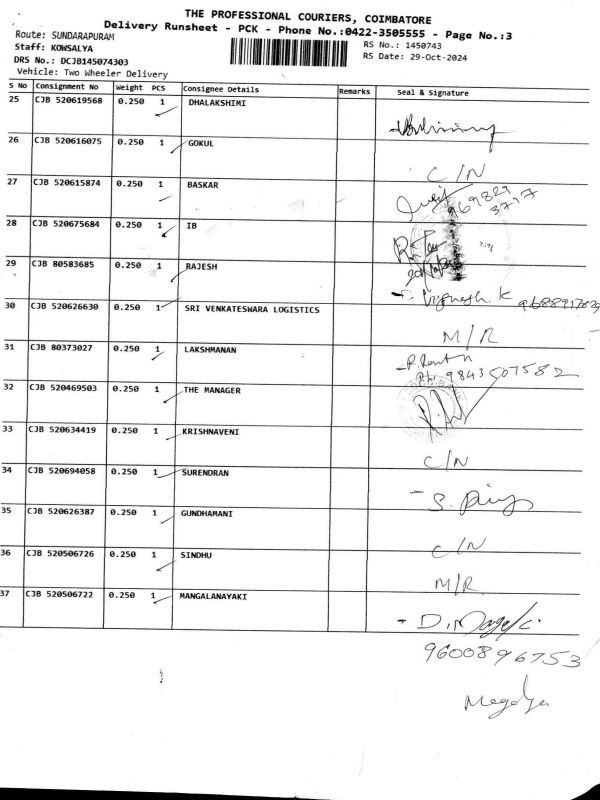 THE PROFESSIONAL COURIERS, COIMBATORE
Delivery Runsheet - PCK - Phone No.:0422-3505555 - Page No.:3
Route: SUNDARAPURAM
Staff: KOWSALYA
DRS No.: DCJB145074303
Vehicle: Two Wheeler Delivery
RS No.: 1450743
RS Date: 29-Oct-2024
S No Consignment No Weight PCS Consignee Details Remarks Seal & Signature
25 CJB 520619568 0.250 1 DHALAKSHIMI
26 CJB 520616075 0.250 1 GOKUL C/N
27 CJB 520615874 0.250 1 BASKAR 969829
3717
28 CJB 520675684 0.250 1 IB
29 CJB 80583685 0.250 1 RAJESH Vignesh. K
30 CJB 520626630 0.250 1 SRI VENKATESWARA LOGISTICS M/R
31 CJB 80373027 0.250 1 LAKSHMANAN
Ph: 9843507582
32 CJB 520469503 0.250 1 THE MANAGER
33 CJB 520634419 0.250 1 KRISHNAVENI C/N
34 CJB 520694058 0.250 1 SURENDRAN - S.
35 CJB 520626387 0.250 1 GUNDHAMANI C/N
36 CJB 520506726 0.250 1 SINDHU M/R
37 CJB 520506722 0.250 1 MANGALANAYAKI
9600896753